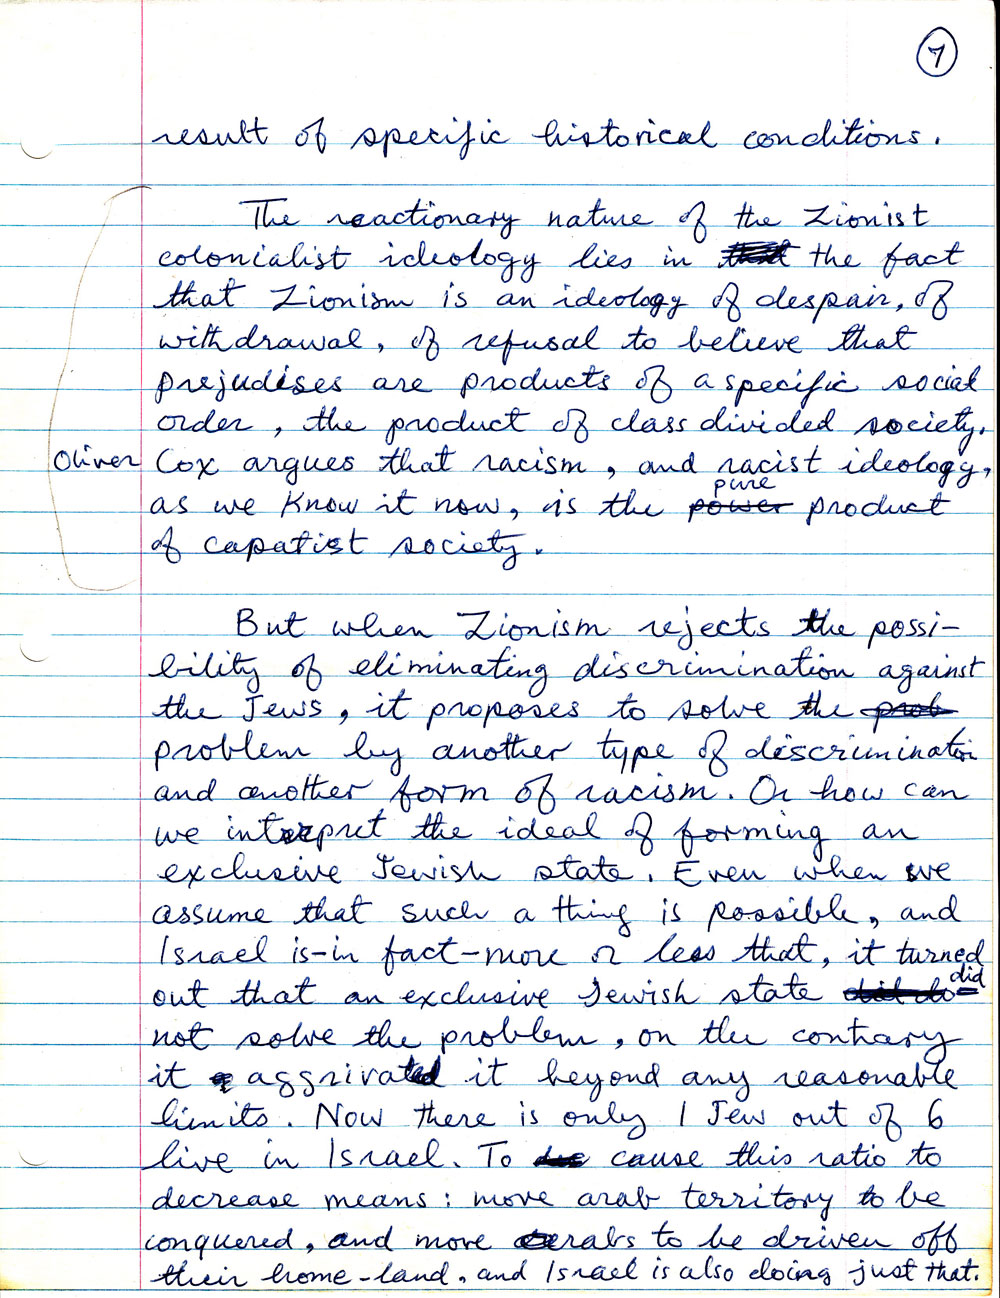 7
result of specific historical conditions.
The reactionary nature of the Zionist
colonialist ideology lies in the fact
that Zionism is an ideology of despair, of
withdrawal, of refusal to believe that
prejudises are products of a specific social
order, the product of class divided society.
Oliver Cox argues that racism, and racist ideology,
pure
as we know it now, is the power product
of capatist society.
But when Zionism rejects the possi-
bility of eliminating discrimination against
the Jews, it proposes to solve the prob
problem by another type of discrimination
and another form of racism. Or how can
we interpret the ideal of forming an
exclusive Jewish state. Even when we
assume that such a thing is possible, and
Israel is-in fact-more or less that, it turned
did
out that an exclusive Jewish state
not solve the problem, on the contrary
it aggrivated it beyond any reasonable
limits. Now there is only 1 Jew out of 6
live in Israel. To cause this ratio to
decrease means: move arab territory to be
conquered, and move arabs to be driven off
their home-land, and Israel is also doing just that.